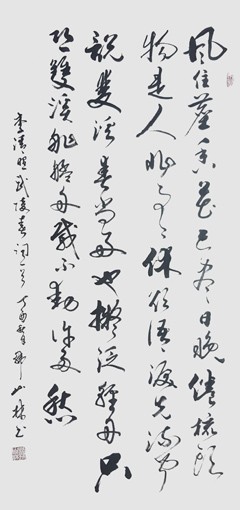 風住塵香花已盡日晚倦梳頭
物是人非事事休欲語淚先流聞
說雙溪春尚好也擬泛輕舟只
恐雙溪舴艋舟載不動許多愁
李清照武陵春詞一首丁酉